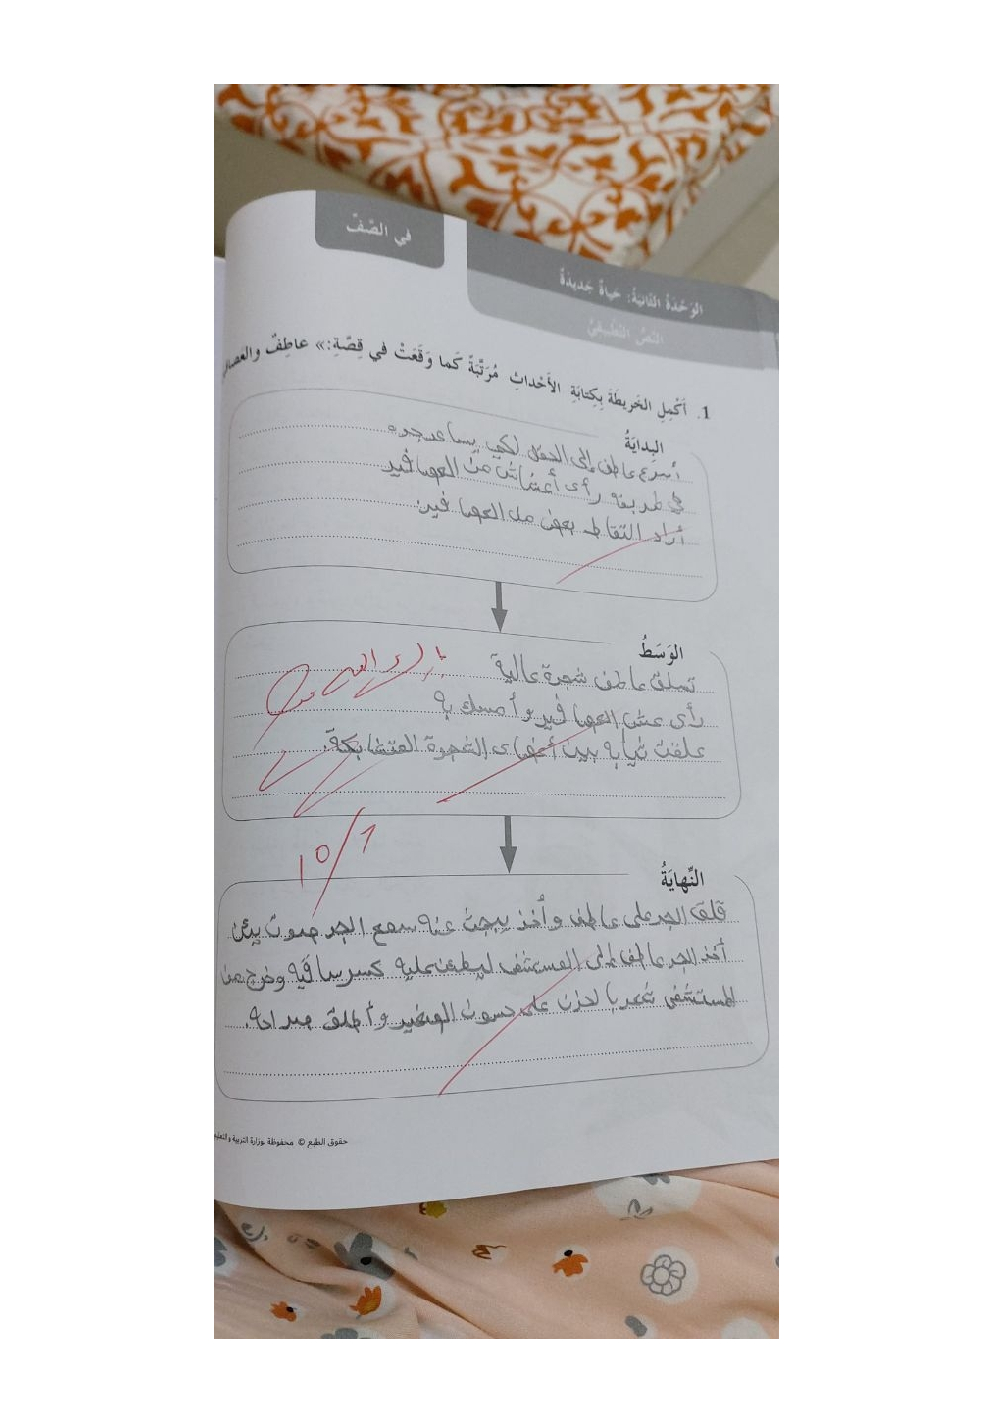 في الصَّفِّ
الوَحْدَةُ الثّانِيَةُ: حَياةٌ جَديدَةٌ
النَّصُّ التَّطْبيقِيُّ
1. أَكْمِلِ الخَريطَةَ بِكِتابَةِ الأَحْداثِ مُرَتَّبَةً كَما وَقَعَتْ في قِصَّةِ: « عاطِفٌ والعصا
البِدايَةُ
أسرع عاطف إلى الحقل لكي يساعد جده
في طريقه رأى أعشاش من العصافير
أراد التقاط بعض من العصافير.
الوَسَطُ
تسلق عاطف شجرة عالية
رأى عش العصافير وأمسك به
علقت ثيابه بين أغصان الشجرة المتشابكة.
بارك الله
10/1
النِّهايَةُ
قلق الجد على عاطف وأخذ يبحث عنه سمع الجد صوت يئن
أخذ الجد عاطف إلى المستشفى ليطمئن عليه كسر ساقيه وخرج من
المستشفى
على
وأطلق سراحه.
حقوق الطبع © محفوظة لوزارة التربية والتعليم